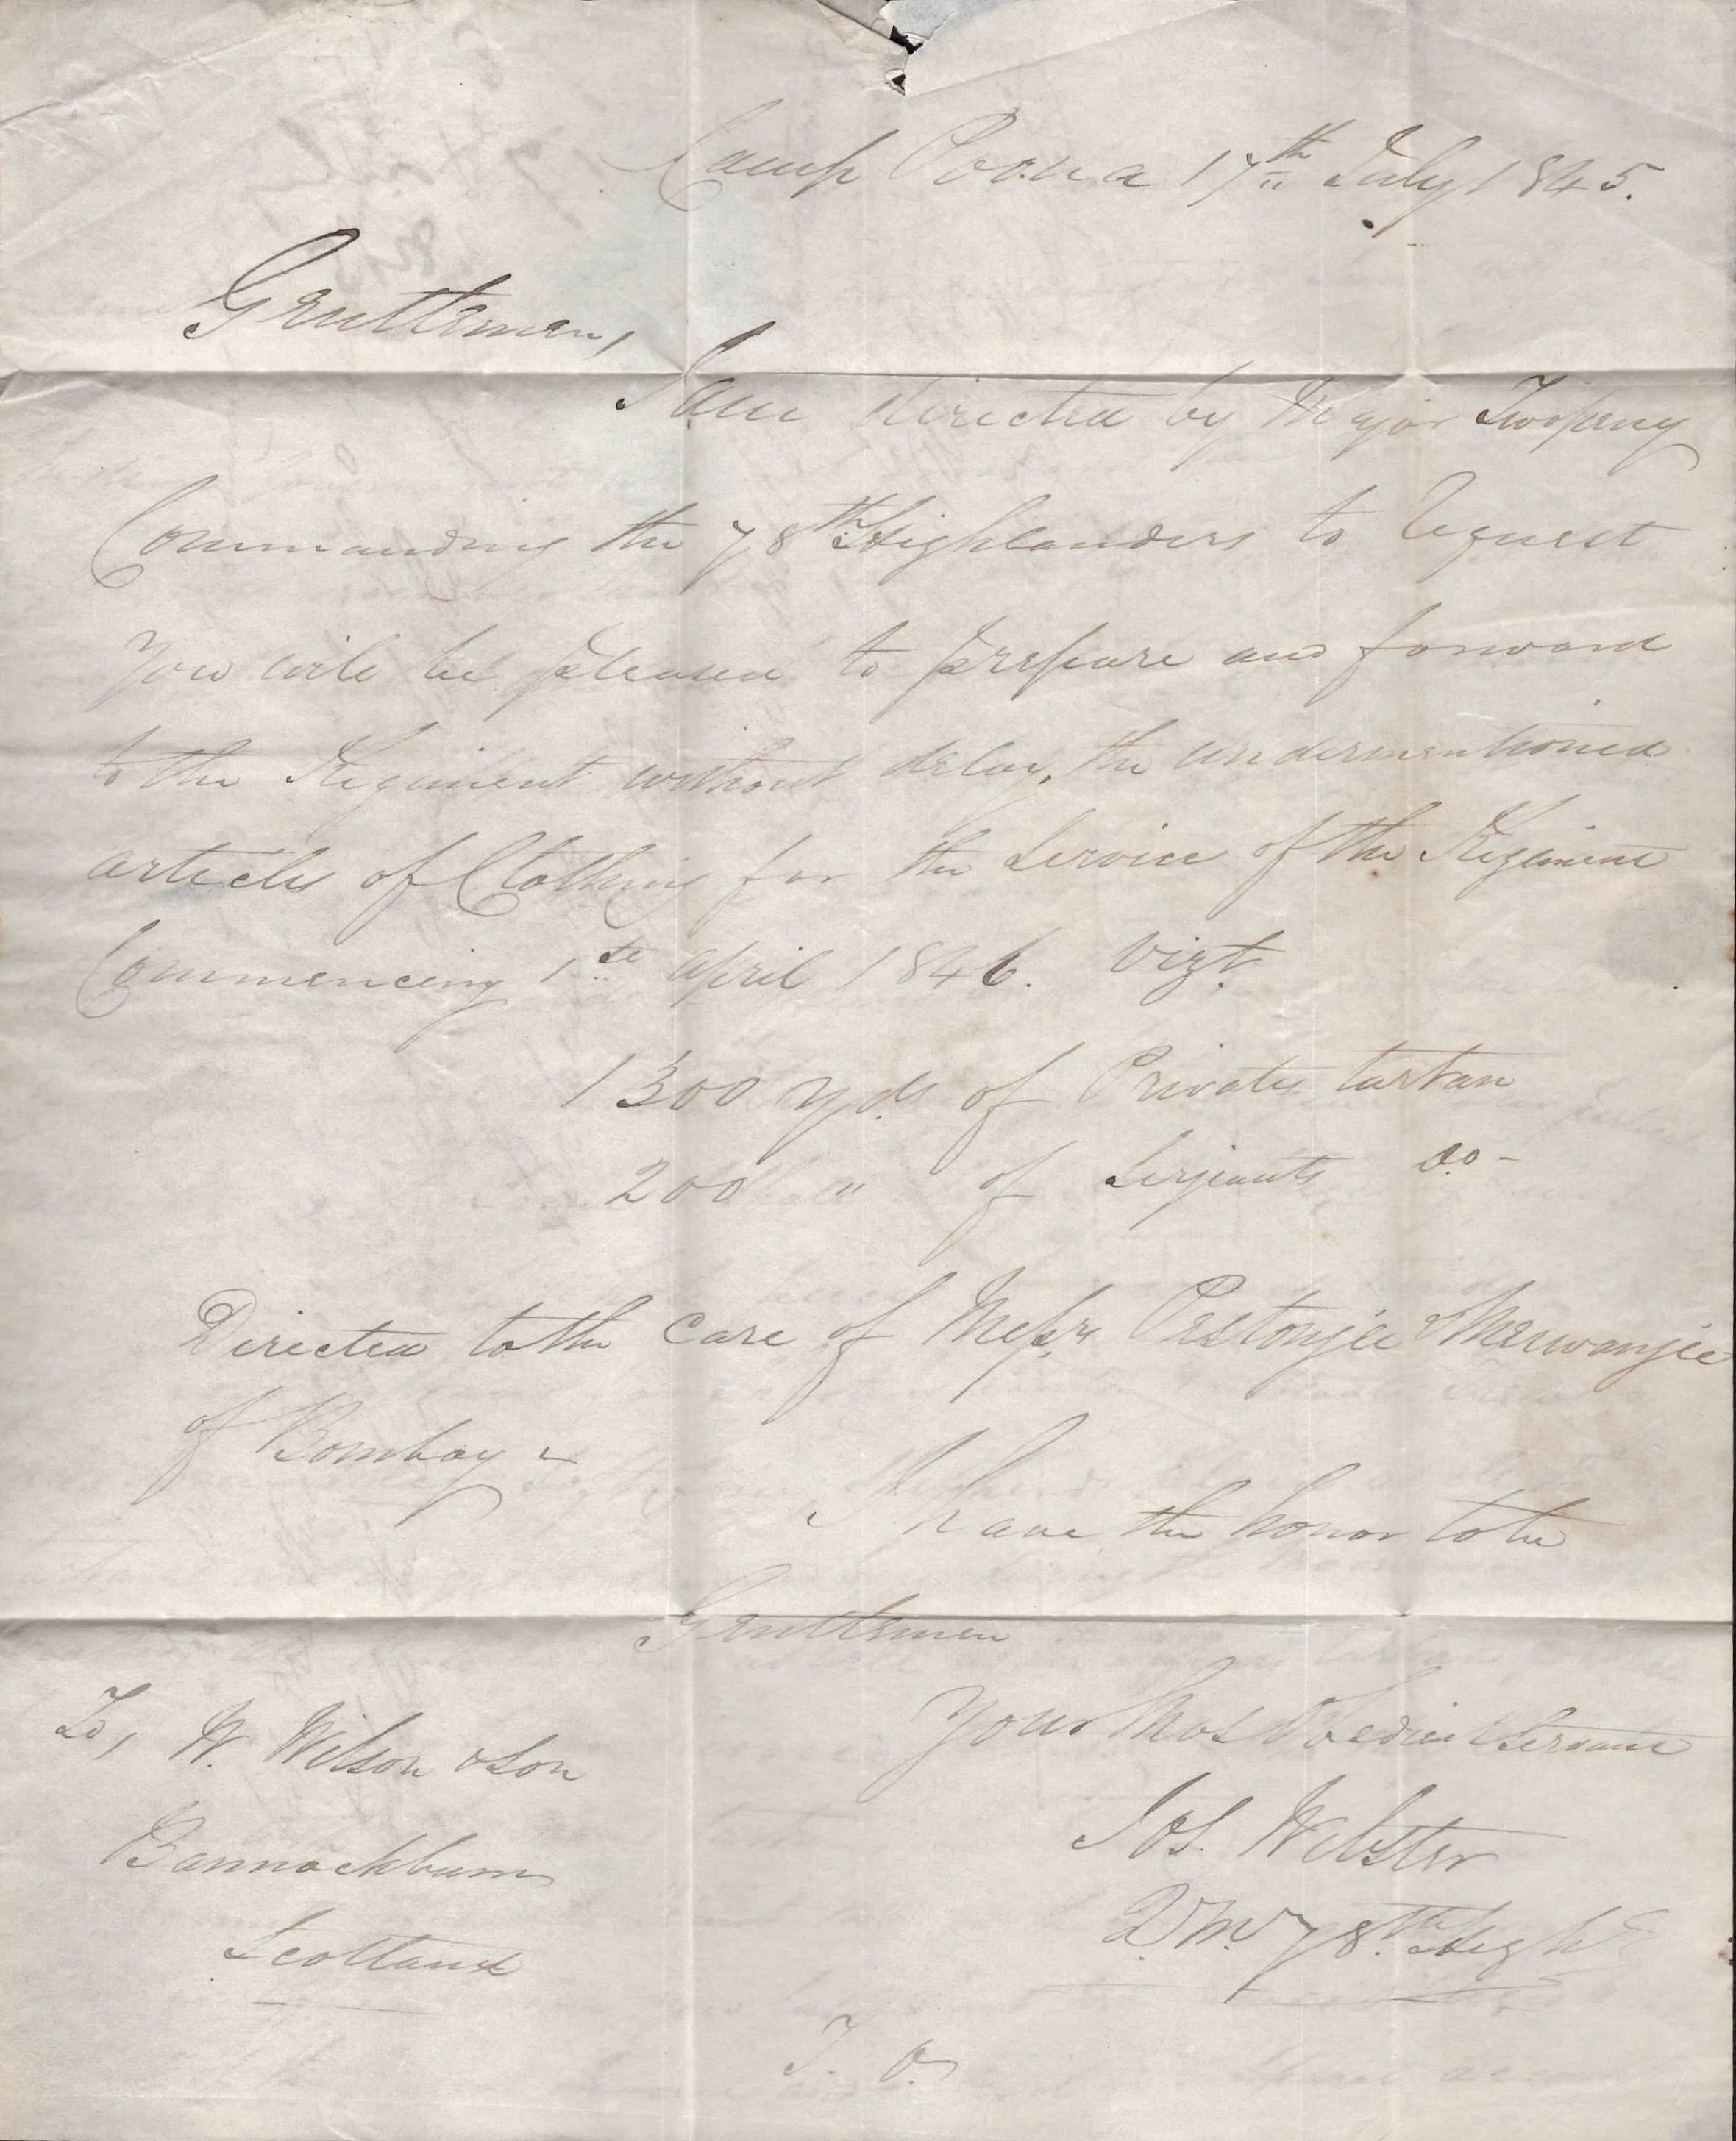 Camp Poona 17th July 1845.
Gentlemen,
I am directed by Major Twopeny
Commanding the 78th Highlanders to request
You will be pleased to prepare and forward
to the Regiment without delay, the undermentioned
articles of Clothing for the Service of the Regiment
Commencing 1st April 1846. Vizt.
1300 Yds of Privates tartan
200 " of Serjeants Do-
Directed to the Care of Messrs Pestonjee & Merwanjee
of Bombay -
I have the honor to be
Gentlemen
Your Most Obedient Servant
Jos. Webster
Q.M. 78th High
To, W. Wilson & Son
Bannockburn
Scotland
T. O.